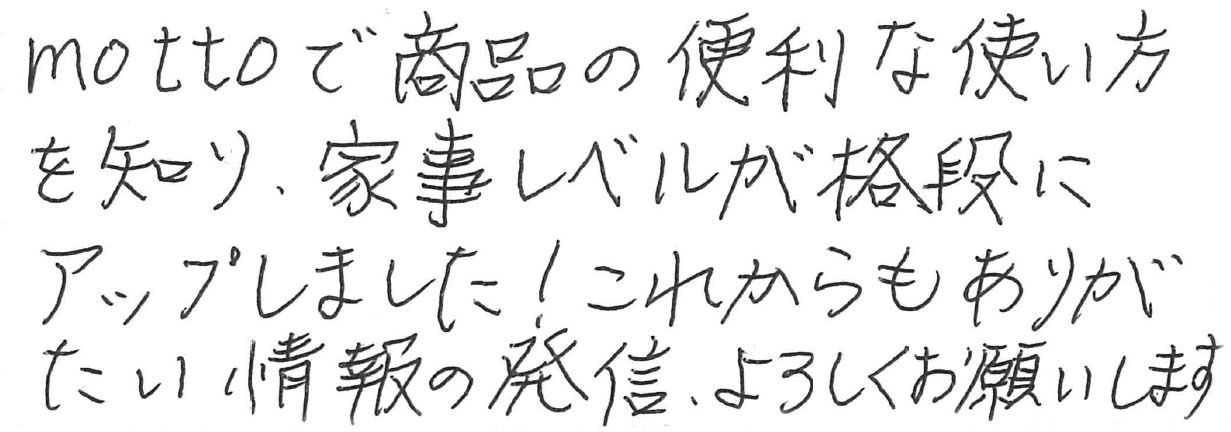 mottoで商品の便利な使い方
を知り、家事レベルが格段に
アップしました!これからもありが
たい情報の発信、よろしくお願いします